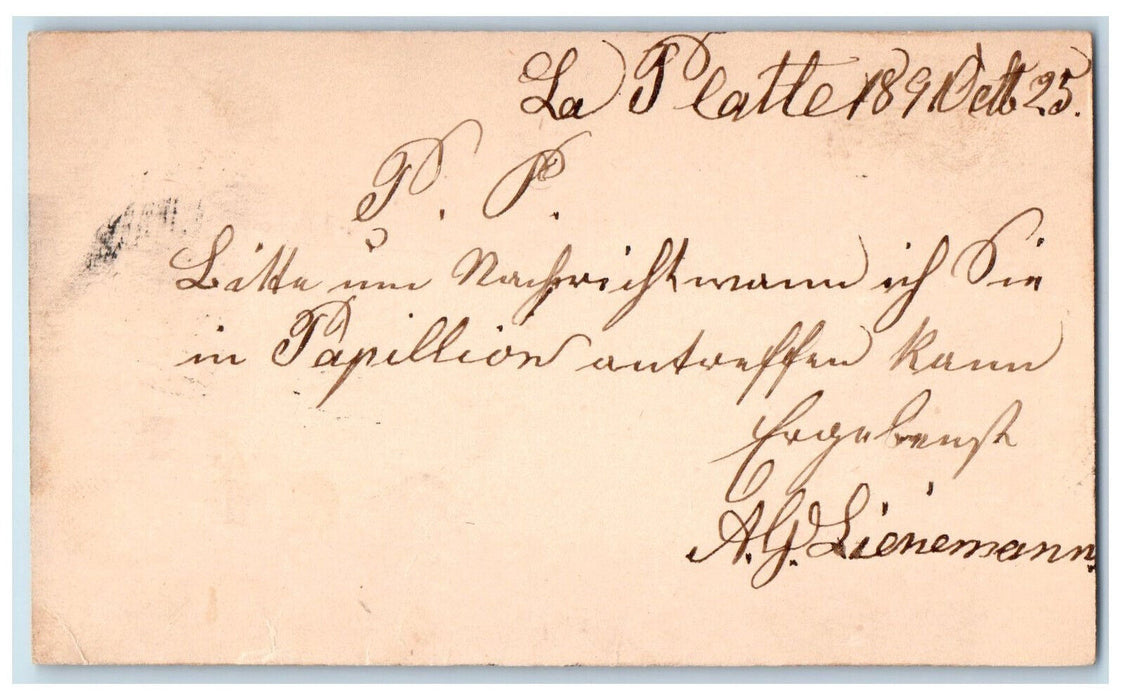 La Platte 1891 Octb 25.
P. P.
Bitte um Nachricht wann ich Sie
in Papillion antreffen kann
Ergebenst
A. G. Lienemann.